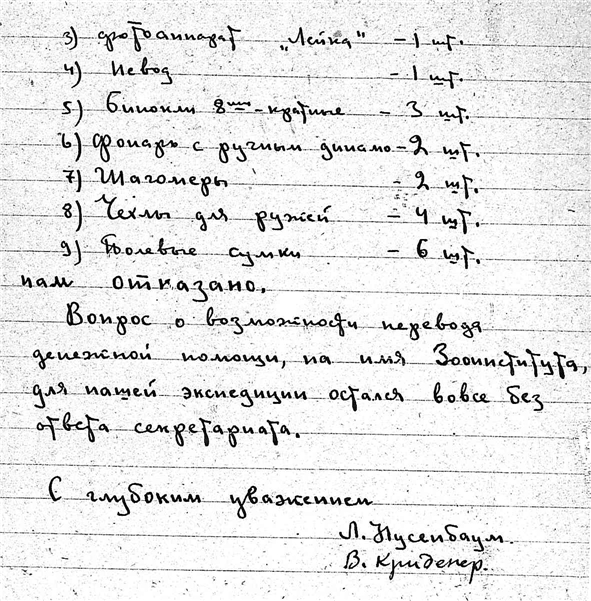 3) фотоаппарат „Лейка" - 1 шт.
4) Невод - 1 шт.
5) Бинокли 8ми-кратные - 3 шт.
6) Фонарь с ручным динамо - 2 шт.
7) Шагомеры - 2 шт.
8) Чехлы для ружей - 4 шт.
9) Полевые сумки - 6 шт.
нам отказано.
Вопрос о возможности перевода
денежной помощи, на имя Зооинститута,
для нашей экспедиции остался вовсе без
ответа секретариата.
С глубоким уважением
Л. Нусенбаум.
В. Криденер.